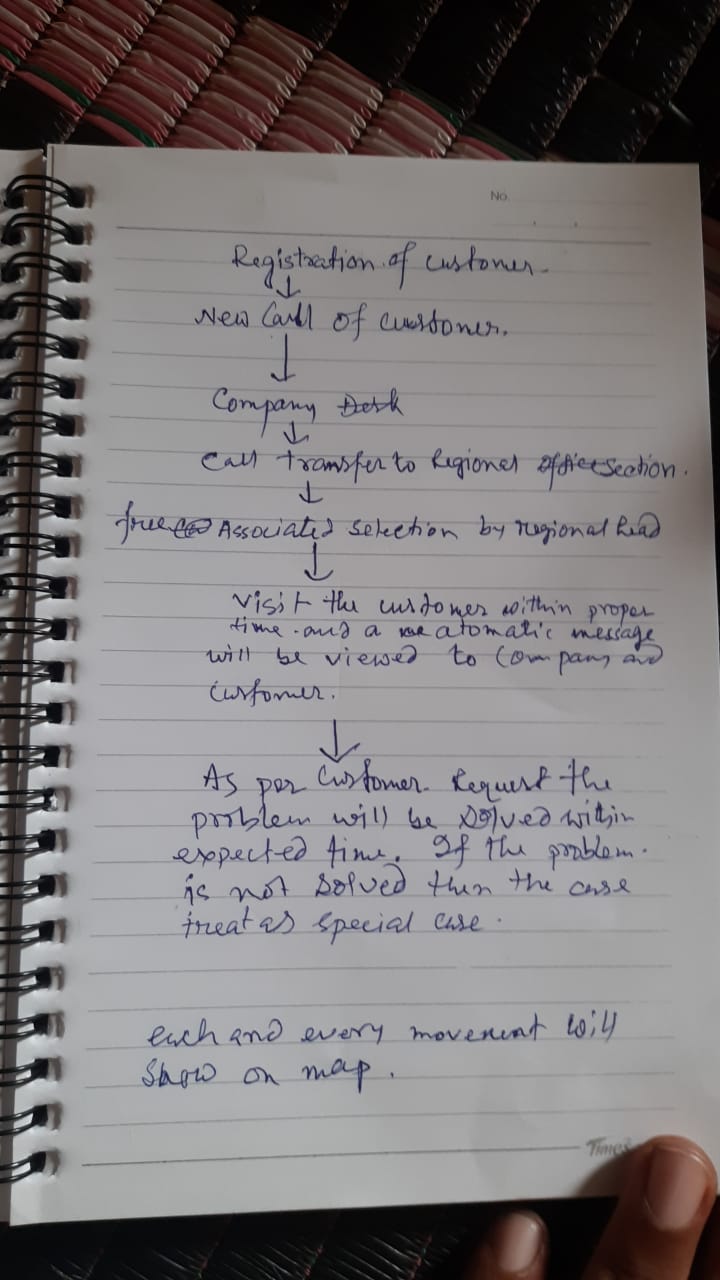 No.
Registration of customer.
↓
New Call of customer.
↓
Company Desk
↓
Call transfer to Regional office section.
↓
free Associated Selection by regional head
↓
Visit the customer within proper
time. and a atomatic message
will be viewed to Company and
Customer.
↓
As per Customer Request the
problem will be solved within
expected time. If the problem.
is not solved then the case
treat as special case.
each and every movement will
Show on map.
Times